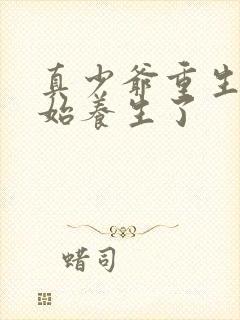 真少爷重生
始养生了
蜡司